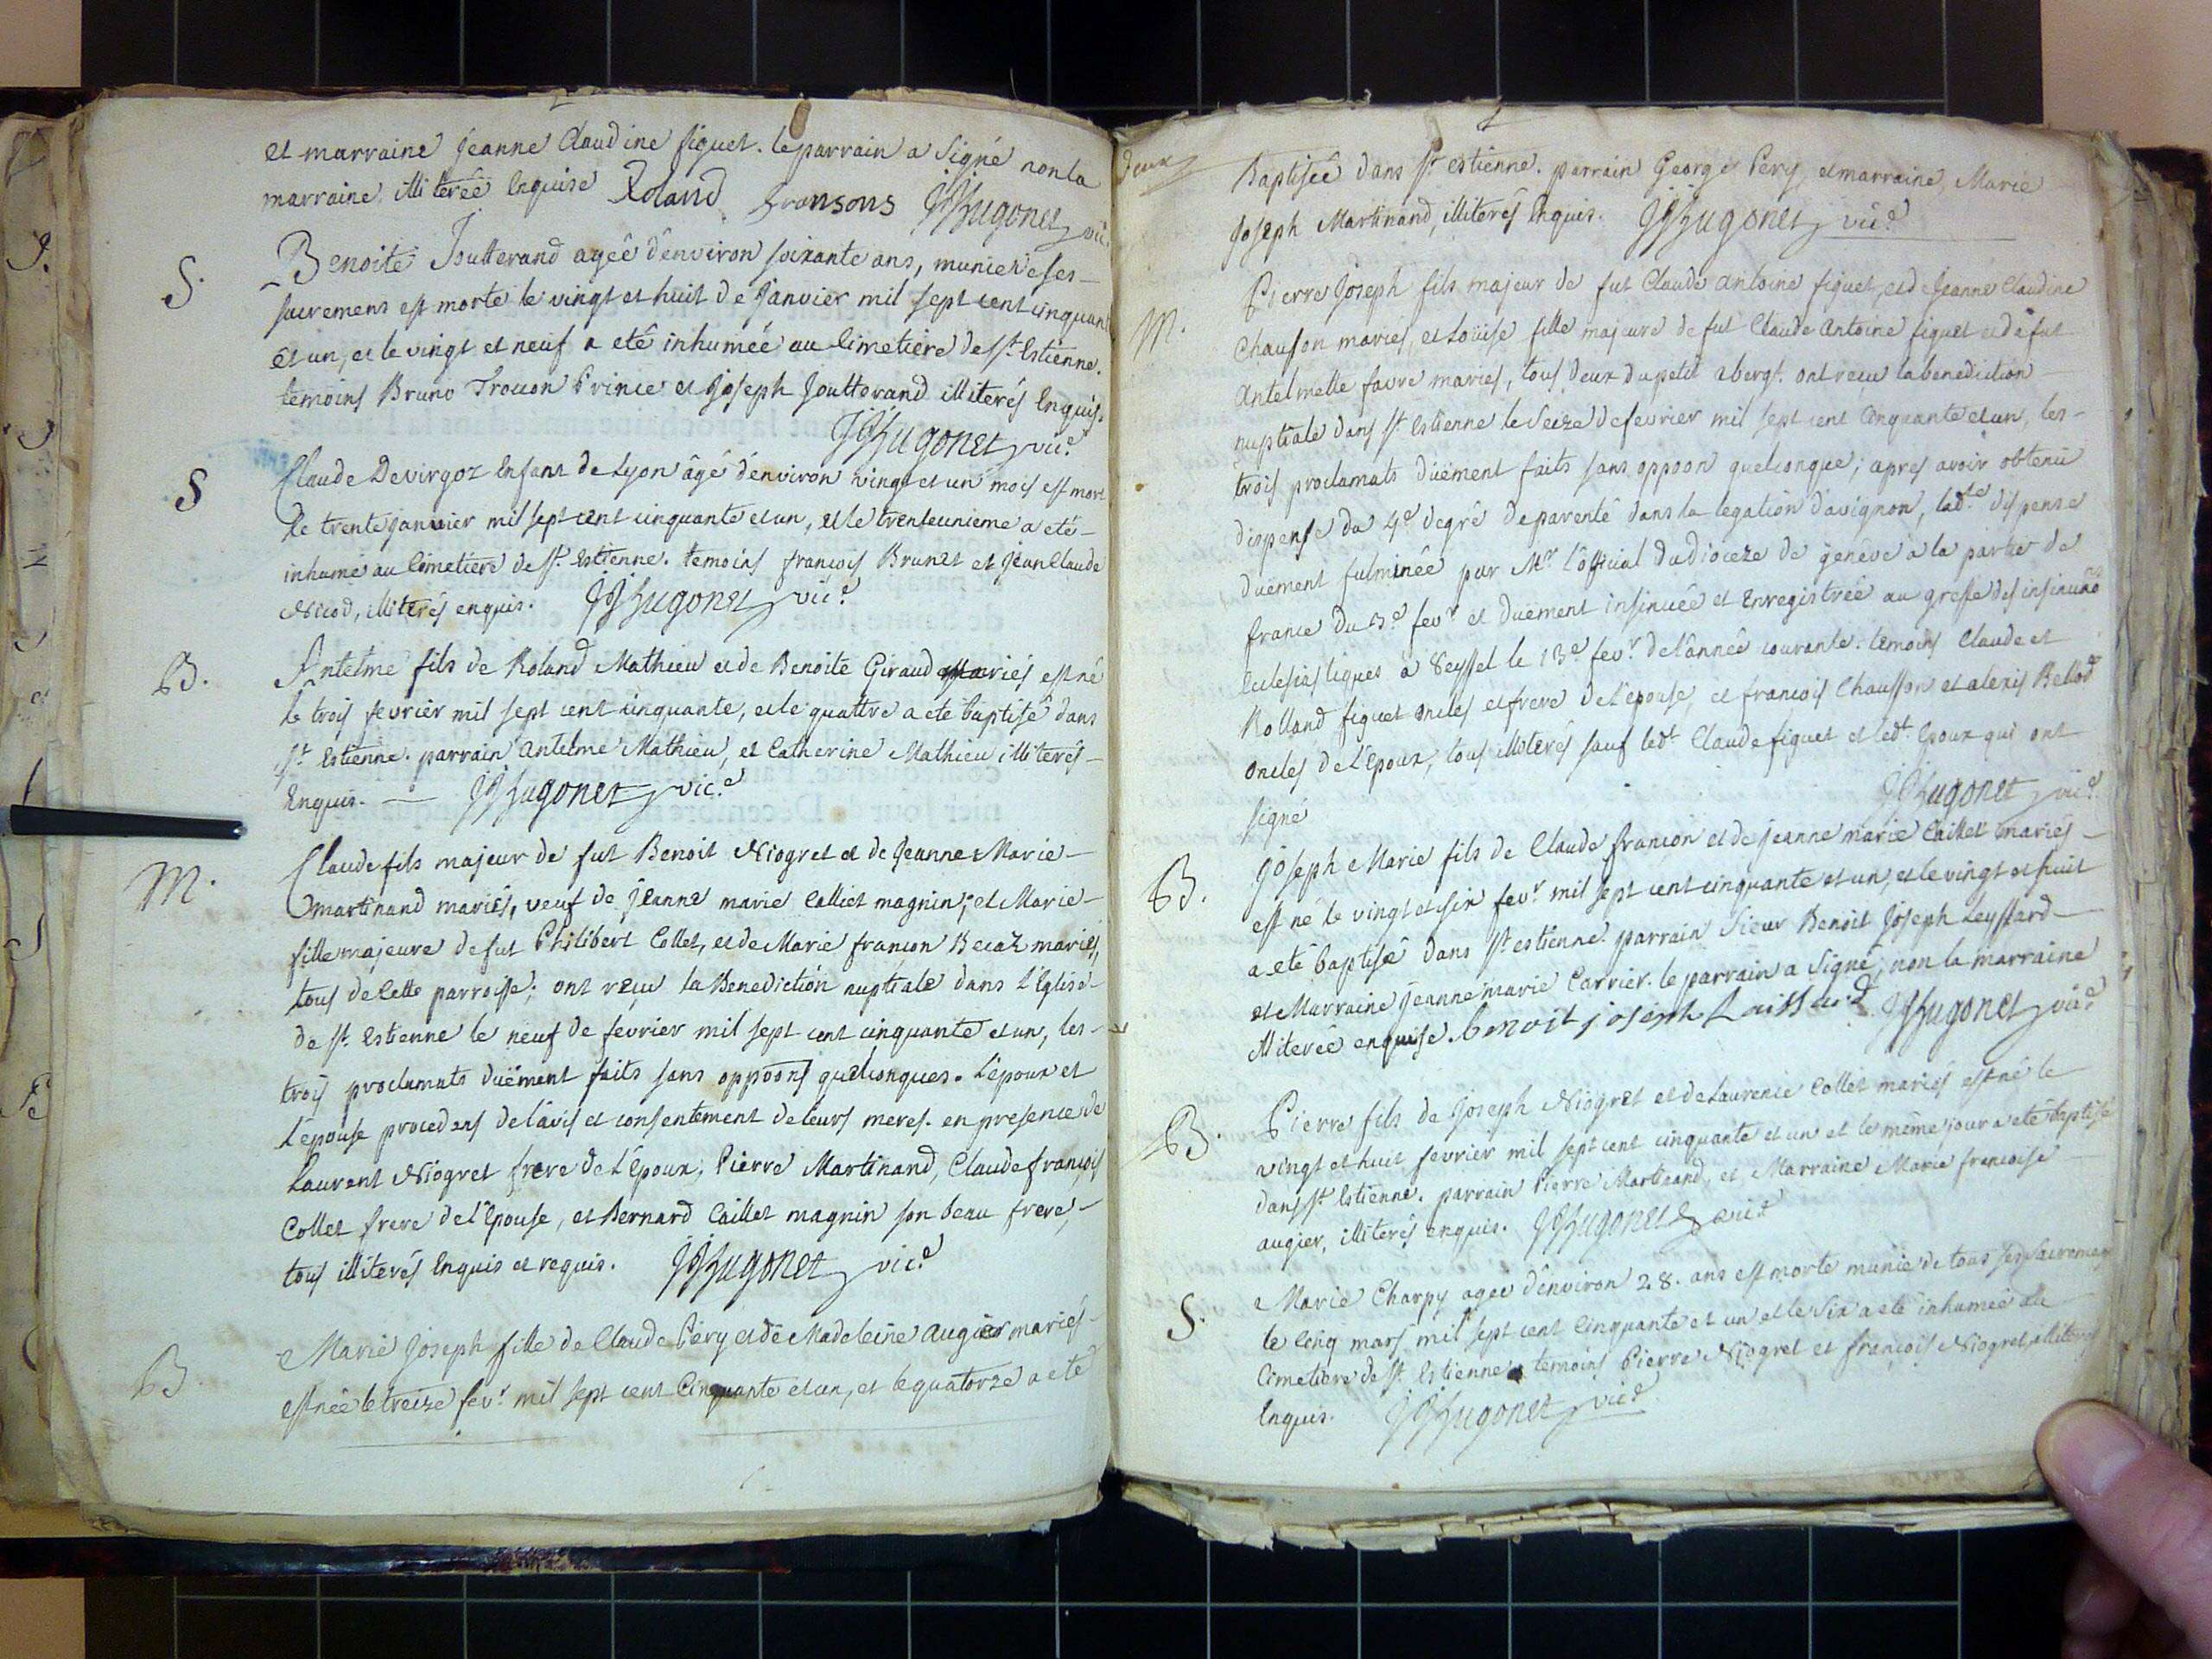 et marraine jeanne Claudine figuet. le parrain a signé non la
marraine illiterée enquise Roland fransons JJHugonet vic.
S. Benoite Joutterand agée d'environ soixante ans, munie de ses
sacremens est morte le vingt et huit de janvier mil sept cent cinquante
et un, et le vingt et neuf a eté inhumée au Cimetiere de St. Estienne.
temoins Bruno Trocon Prince et Joseph Joutterand illiterés enquis.
JJHugonet vic.e
S Claude Devirgoz enfant de Lyon âgé d'environ vingt et un mois est mort
le trente janvier mil sept cent cinquante et un, et le trenteunieme a eté
inhumé au Cimetiere de St. Estienne. temoins francois Brunet et Jean Claude
Nicod, illiterés enquis. JJHugonet vic.e
B. Antelme fils de Roland Mathieu et de Benoite Giraud mariés est né
le trois fevrier mil sept cent cinquante, et le quattre a eté baptisé dans
St. Estienne. parrain antelme Mathieu, et Catherine Mathieu illiterés
Enquis. JJHugonet vic.e
M. Claude fils majeur de fut Benoit Niogret et de Jeanne Marie
martinand mariés, veuf de jeanne marie Calliet magnin; et Marie
fille majeure de fut Philibert Collet, et de Marie françon Becaz mariés,
tous de Cette parroisse; ont reçu la Benediction nuptiale dans L'Eglise
de St. Estienne le neuf de fevrier mil sept cent cinquante et un, les
trois proclamats duëment faits sans oppoons quelconques. L'epoux et
l'épouse procedans de l'avis et consentement de leurs meres. en presence de
Laurent Niogret frere de l'Epoux, Pierre Martinand, Claude françois
Collet frere de l'Epouse, et Bernard Caillet magnin son beau frere,
tous illiterés Enquis et requis. JJHugonet vic.e
B. Marie Joseph fille de Claude Péry et de Madeleine augier mariés
est née le treize fevr. mil sept cent Cinquante et un, et le quatorze a eté
deux
Baptisée dans St estienne. parrain George Péry, et marraine, Marie
Joseph Martinand, illiterés Enquis. JJHugonet vic.e
M. Pierre Joseph fils majeur de fut Claude antoine figuet, et de Jeanne Claudine
Chausson mariés, et Loüise fille majeure de fut Claude Antoine figuet et de fut
Antelmette favre mariés, tous deux du petit abergt. ont recu la benediction
nuptiale dans St Estienne le seize de fevrier mil sept cent cinquante et un, les
trois proclamats duëment faits sans oppoon quelconque; apres avoir obtenu
dispense du 4e degré de parenté dans la legation d'avignon, lad.te dispense
duëment fulminée par Mr l'official du dioceze de genève a la partie de
france du 3e fevr et duëment insinuée et Enregistrée au greffe des insinuãos
Eclesiastiques a Seyssel le 13e fevr. de l'année courante. temoins Claude et
Rolland figuet oncles et frere de l'epouse, et francois Chausson et alexis Bellod
oncles de l'Epoux, tous illiterés sauf ledt. Claude figuet et ledt. Epoux qui ont
signé JJHugonet vic.e
B. Joseph Marie fils de Claude françon et de jeanne marie Caillet mariés
est né le vingt et six fevr mil sept cent cinquante et un, et le vingt et huit
a eté baptisé dans St estienne. parrain Sieur Benoit Joseph Leyssard
et Marraine Jeanne marie Carrier. le parrain a signé, non la marraine
illiterée enquise. benoit joseph Laissard JJHugonet vic.e
B. Pierre fils de Joseph Niogret et de Laurence Collet mariés est né le
vingt et huit fevrier mil sept cent cinquante et un et le même jour a eté baptisé
dans St Estienne. parrain Pierre Martinand, et Marraine Marie françoise
augier, illiterés enquis. JJHugonet vic.e
S. Marie Charpy agée d'environ 28. ans est morte munie de tous ses sacremens
le cinq mars mil sept cent Cinquante et un et le six a eté inhumée au
Cimetiere de St. Estienne temoins Pierre Niogret et françois Niogret illiterés
Enquis. JJHugonet vic.e